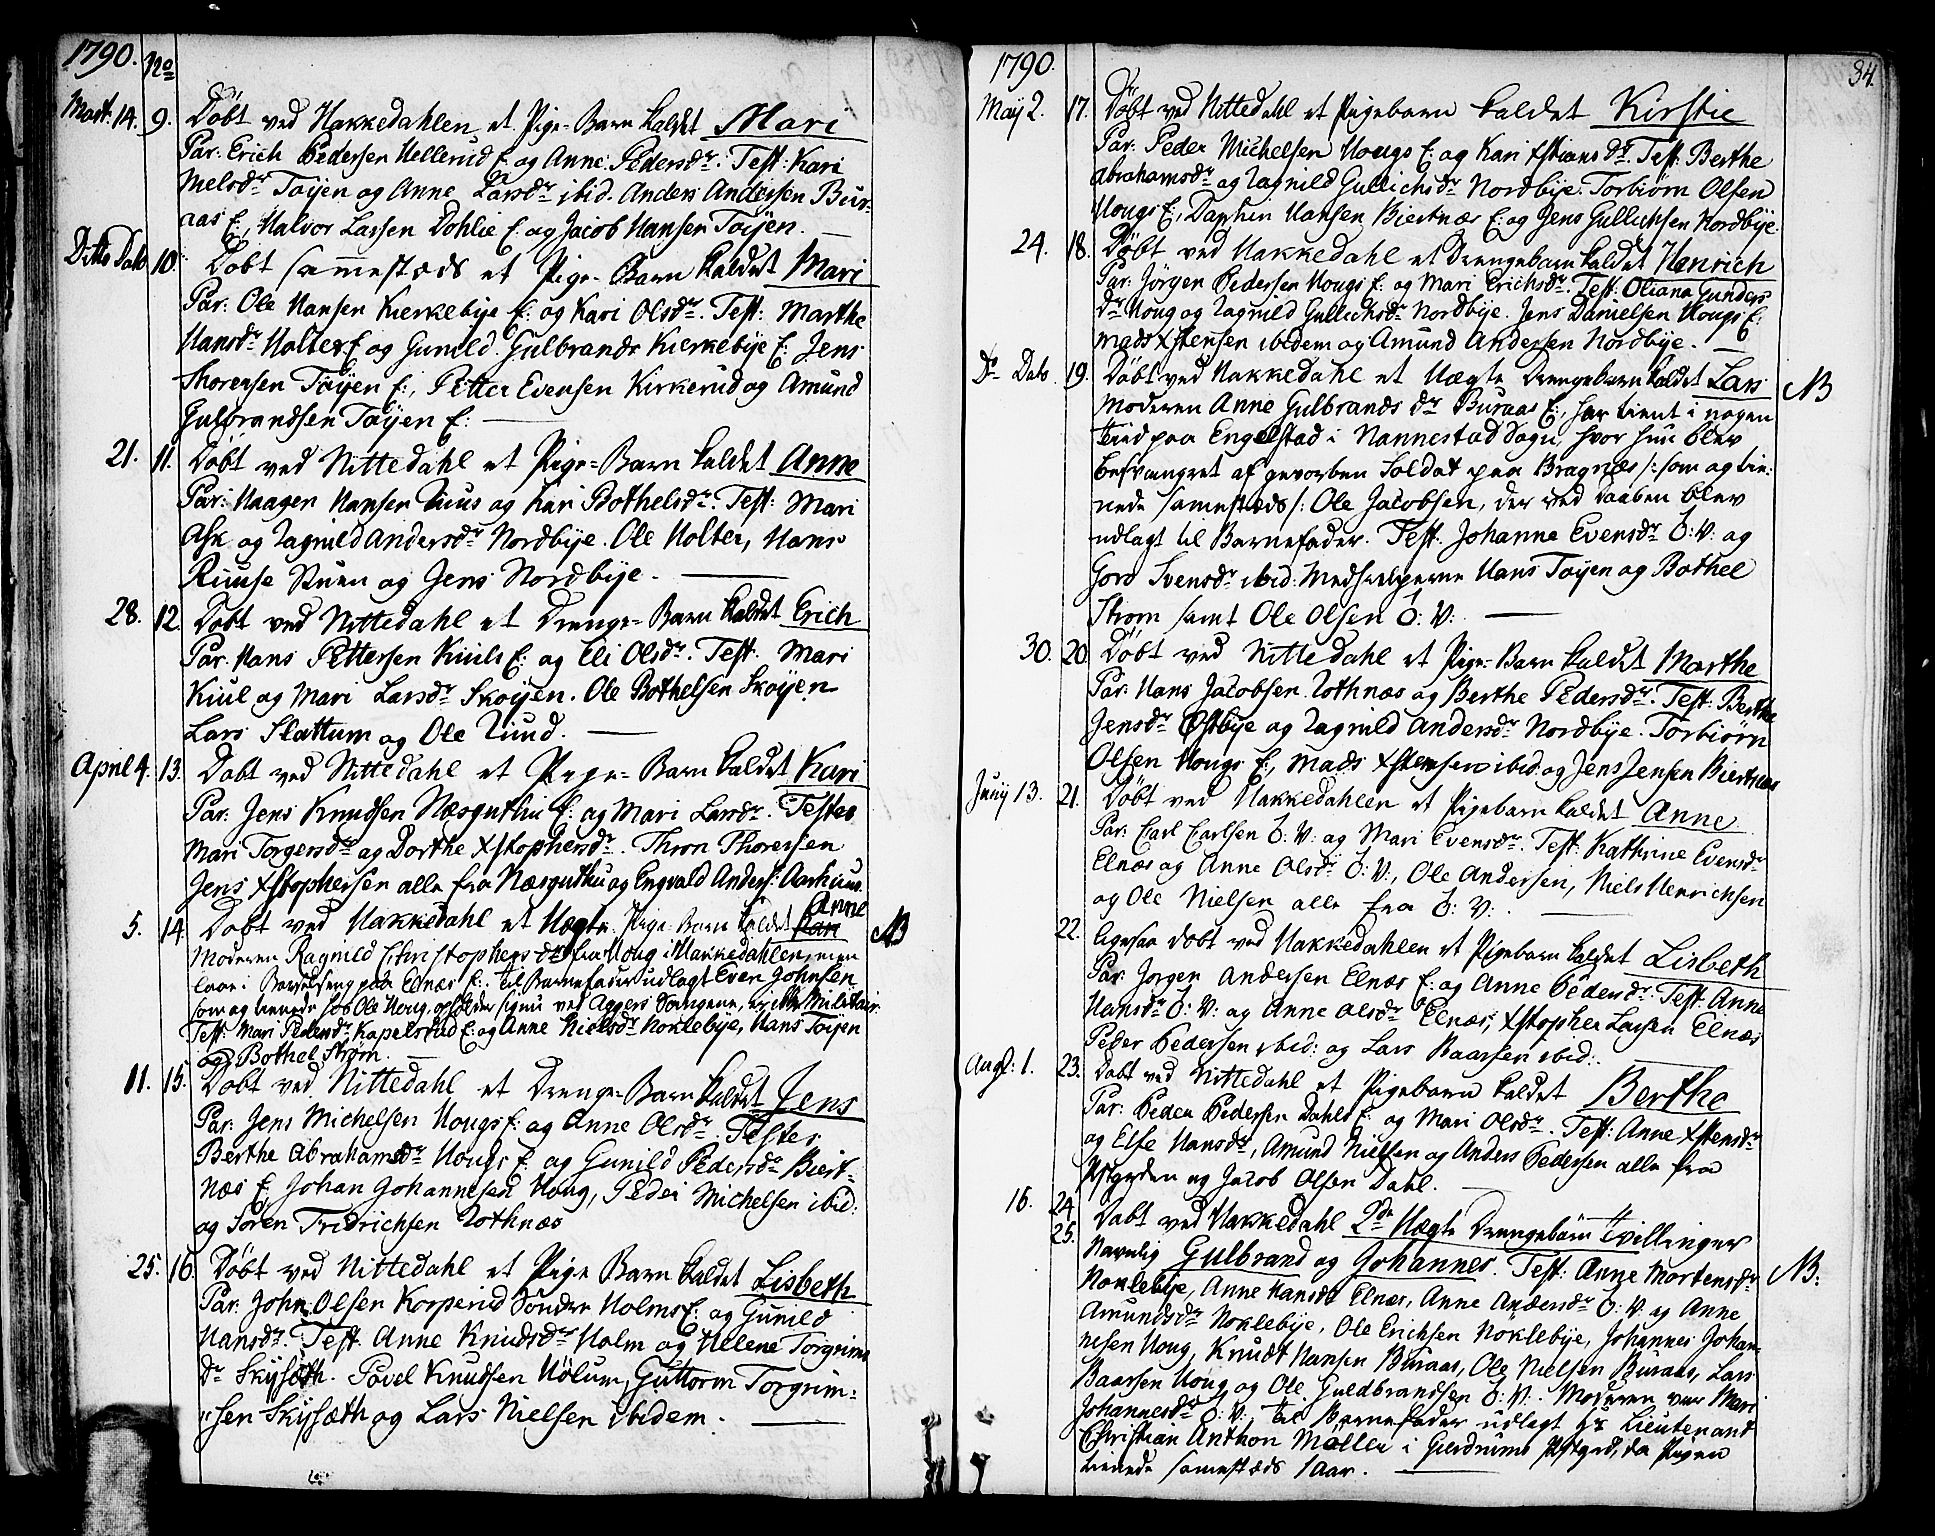 1790. No
Mart. 14. 9. Döbt ved Hakkedahlen et Pige-Barn kaldet Mari
Par: Erich Pedersen Hellerud E: og Anne Pedersdr. Test: Kari
Melsdr Töyen og Anne Larsdr ibid. Anders Andersen Bur-
aas E:, Halvor Larsen Dohlie E. og Jacob Hansen Töyen.
Ditto Dato 10. Döbt samestæds et Pige-Barn kaldet Mari
Par: Ole Hansen Kierkebye E: og Kari Olsdr. Test: Marthe
Hansdr Holter E og Gunild Gulbrandr Kierkebye E: Jens
Thoresen Töyen E:, Petter Evensen Kirkerud og Amund
Gulbrandsen Töyen E:
21. 11. Döbt ved Nittedahl et Pige-Barn kaldet Anne
Par: Haagen Hansen Huus og Kari Bothelsdr. Test: Mari
Ask og Ragnild Andersdr Nordbye. Ole Holter, Hans
Ruuse Stuen og Jens Nordbye.
28. 12. Döbt ved Nittedahl et Drenge-Barn kaldet Erich
Par. Hans Pettersen Kiuls E: og Eli Olsdr. Test. Mari
Kiul og Mari Larsdr Skøyen. Ole Bothelsen Skøyen
Lars Slattum og Ole Lund.
April 4. 13. Dabt ved Nittedahl et Pige-Barn kaldet Kari
Par. Jens Knudsen Næsguthu E: og Mari Larsdr. Testes
Mari Torgersdr og Dorthe Xstophersdr. Thron Thoresen
Jens Xstophersen alle fra Næsguthu og Engvald Anders: Aarhuus.
5. 14. Dobt ved Hakkedahl et Uægte Pige-Barn kaldet Kari Anne NB
Moderen Ragnild Christophersdr fra Houg i Hakkedahlen, men
laae i Barselseng paa Elnæs E:. Til Barnefader udlagt Even Johnsen
som og tienede hos Ole Houg, opholder sig nu ved Aggers Sougene, er ikke Militair
Test: Mari Pedersdr Kapelsrud E: og Anne Nielsdr Noklebye, Hans Töyen
og Bothel Ström.
11. 15. Dobt ved Nittedahl et Drenge-Barn kaldet Jens
Par. Jens Michelsen Hougs E: og Anne Olsdr. Testes
Berthe Abrahamsdr Hougs E: og Gunild Pedersdr Biert-
næs E, Johan Johannesen Houg, Peder Michelsen ibid:
og Sören Fridrichsen Rothnæs
25. 16. Döbt ved Nittedahl et Pige Barn kaldet Lisbeth
Par. John Olsen Korperud Sönder Holms E: og Gunild
Hansdr. Test. Anne Knudsdr Holm og Helene Torgrims
dr Skysæth. Povel Knudsen Hölum, Guttorm Torgrim-
sen Skysæth og Lars Nielsen ibidem.
1790. 34.
May 2. 17. Döbt ved Nittedahl et Pigebarn kaldet Kirstie
Par: Peder Michelsen Hougs E: og Kari Xstiansdr. Test: Berthe
Abrahamsdr og Ragnild Gullichsdr Nordbye. Torbiörn Olsen
Hougs E:, Daphin Hansen Biertnæs E: og Jens Gullichsen Nordbye.
24. 18. Döbt ved Hakkedahl et Drengebarn kaldet Henrich
Par: Jörgen Pedersen Hougs E: og Mari Erichsdr. Test: Oliana Gunders
dr Houg og Ragnild Gullichsdr Nordbye. Jens Danielsen Hougs E:
Mads Xstensen ibidem og Amund Andersen Nordbye.
Do Dato. 19. Döbt ved Hakkedahl et Uægte Drengebarn kaldet Lars NB
Moderen Anne Gulbrandsdr Buraas E:, har tient i nogen
tiid paa Engelstad i Nannestad Sogn, hvor hun blev
besvangret af gevorben Soldat paa Bragnæs /: som og tie-
nede samestæds /: Ole Jacobsen, der ved Daaben blev
udlagt til Barnefader. Test. Johanne Evensdr O: V: og
Goro Svensdr ibid: Medhielperne Hans Töyen og Bothel
Strøm samt Ole Olsen O: V:
30. 20. Döbt ved Nittedahl et Pige-Barn kaldet Marthe
Par: Hans Jacobsen Rothnæs og Berthe Pedersdr. Test: Berthe
Jensdr Østbye og Ragnild Andersdr Nordbye. Torbiörn
Olsen Hougs E:, Mads Xstensen ibid og Jens Jensen Biertnæs
Juny 13. 21. Döbt ved Hakkedahlen et Pigebarn kaldet Anne
Par: Carl Carlsen O: V: og Mari Evensdr. Test: Kathrine Evensdr
Elnæs og Anne Olsdr O: V:, Ole Andersen, Niels Henrichsen
og Ole Nielsen alle fra O: V:
22. Ligesaa dobt ved Hakkedahlen et Pigebarn kaldet Lisbeth
Par: Jörgen Andersen Elnæs E: og Anne Pedersdr. Test: Anne
Hansdr O: V: og Anne Olsdr Elnæs, Xstopher Larsen Elnæs
Peder Pedersen ibid: og Lars Baarsen ibid:
Augt: 1. 23. Dabt ved Nittedahl et Pigebarn kaldet Berthe
Par: Peder Pedersen Dahls E: og Mari Olsdr. Test: Anne Xstensdr
og Else Hansdr, Amund Nielsen og Anders Pedersen alle fra
Pstgrden og Jacob Olsen Dahl.
16. 24. Dabt ved Hakkedahl 2de Uægte Drengebörn Tvillinger
25. Navnlig Gulbrand og Johannes. Test: Anne Mortensdr NB:
Noklebye, Anne Hansdr Elnæs, Anne Andersdr O: V: og Anne
Amundsdr Noklebye, Ole Erichsen Nöklebye, Johannes Johan-
nesen Houg, Knudt Hansen Buraas, Ole Nielsen Buraas, Lars
Baarsen Houg og Ole Guldbrandsen O: V:. Moderen var Mari
Johannesdr O: V:, til Barnefader udlagt Hr Lieutenant
Christian Anthon Möller i Gierdrums Pstgrd, da Pigen
tienede samestæds i Aar.